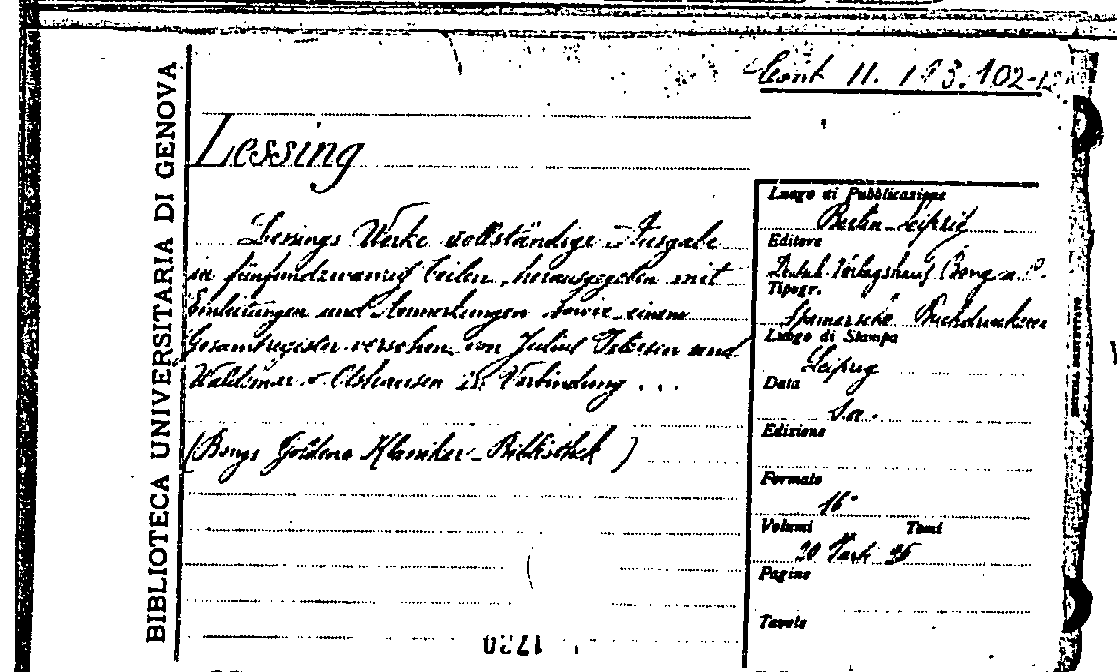 BIBLIOTECA UNIVERSITARIA DI GENOVA
Cont II. 193.102-12
Lessing
Lessings Werke vollständige Ausgabe
in fünfundzwanzig Teilen, herausgegeben mit
Einleitungen und Anmerkungen sowie einem
Gesamtregister versehen von Julius Petersen und
Waldemar v. Olshausen in Verbindung ...
(Bongs Goldene Klassiker-Bibliothek)
Luogo di Pubblicazione
Berlin-Leipzig
Editore
Verlagshaus Bong u. C.
Tipogr.
Spamersche Buchdruckerei
Luogo di Stampa
Leipzig
Data
s.a.
Edizione
Formato
16°
Volumi Tomi
20 25
Pagine
Tavole